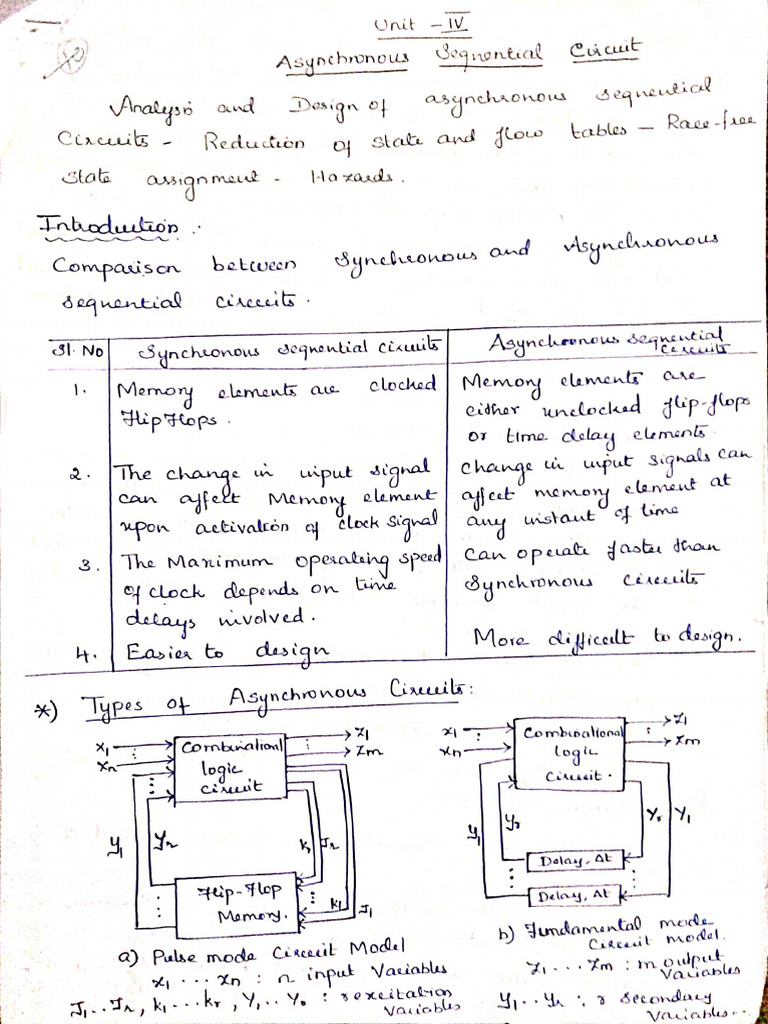 Unit - IV
Asynchronous Sequential Circuit
Analysis and Design of asynchronous sequential
Circuits - Reduction of state and flow tables - Race-free
state assignment - Hazards.
Introduction :-
Comparison between Synchronous and Asynchronous
sequential circuits.
Sl. No
Synchronous sequential circuits
Asynchronous sequential
circuits
1.
Memory elements are clocked
Flip Flops.
Memory elements are
either unclocked flip-flops
or time delay elements
2.
The change in input signal
can affect Memory element
upon activation of clock signal
change in input signals can
affect memory element at
any instant of time
3.
The Maximum operating speed
of clock depends on time
delays involved.
can operate faster than
Synchronous circuits
4.
Easier to design
More difficult to design.
*) Types of Asynchronous Circuits:
x1
xn
Combinational
logic
circuit
z1
zm
y1
yr
kr
Jr
k1
J1
Flip-Flop
Memory.
a) Pulse mode Circuit Model
x1 ... xn : n input Variables
J1..Jr, k1...kr, y1..yr : r excitation
Variables
x1
xn
Combinational
logic
circuit.
z1
zm
y1
yr
Yr
Y1
Delay, Δt
Delay, Δt
b) Fundamental mode
Circuit model.
z1 ... zm : m output
Variables
y1...yr : r secondary
Variables...